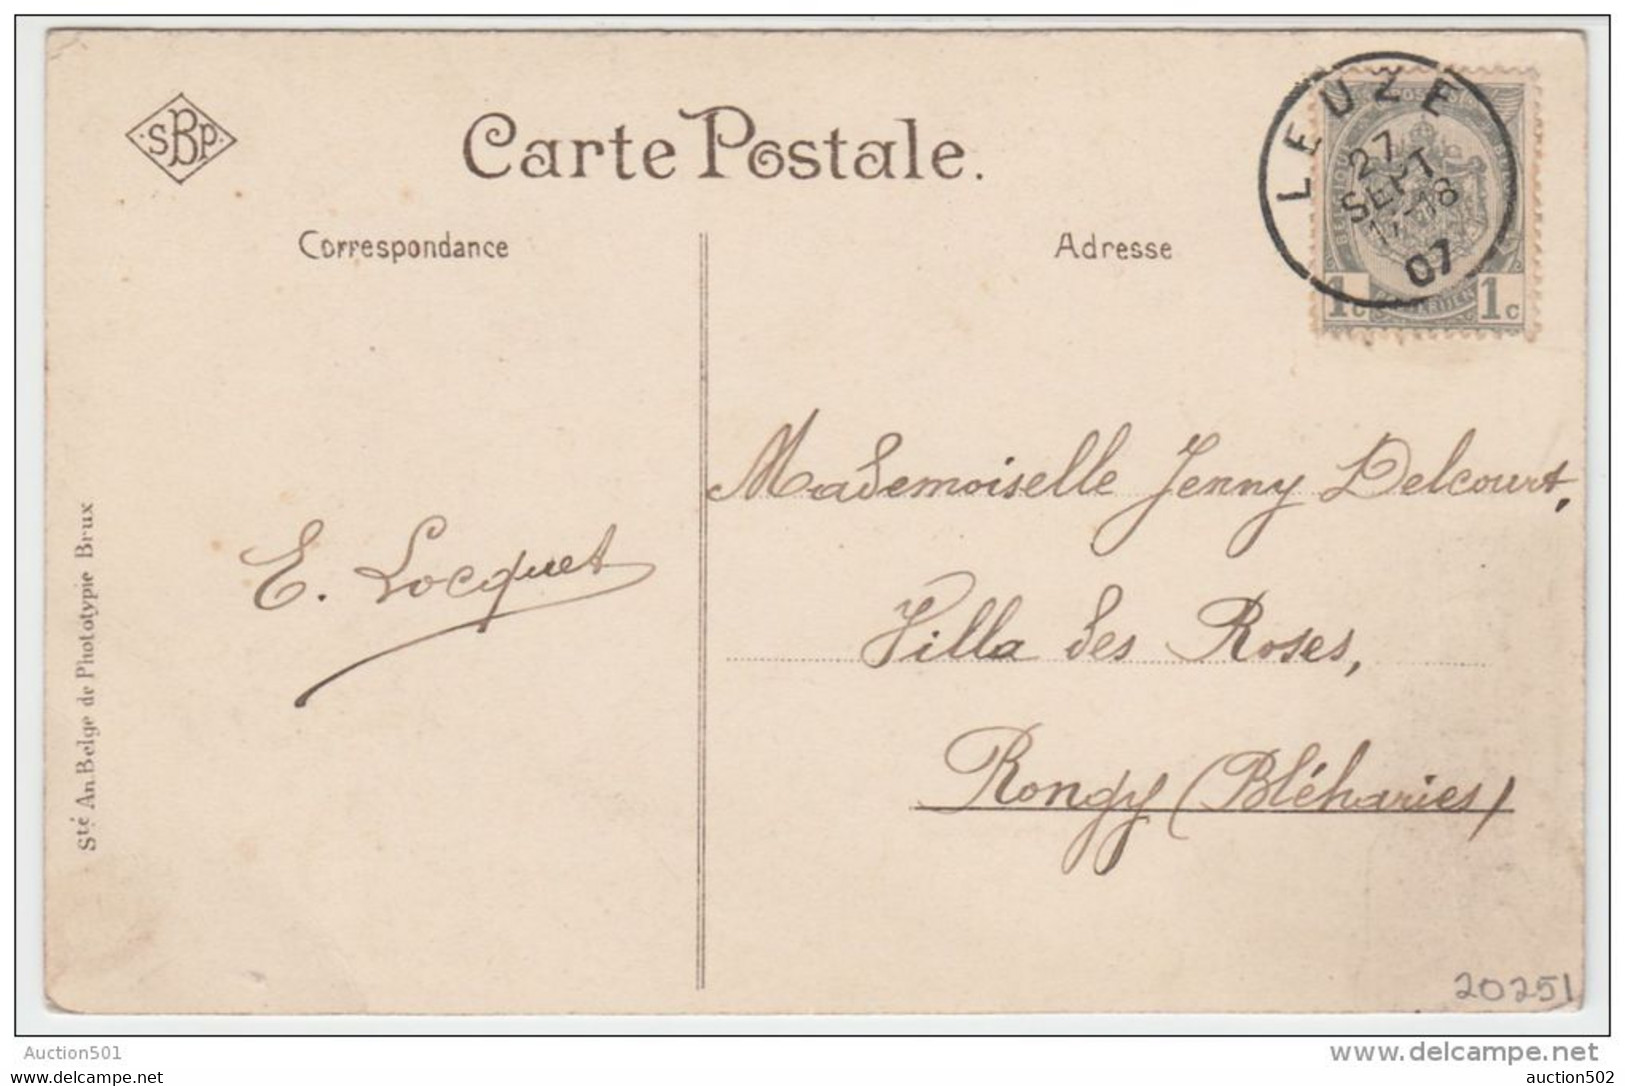 SBP
Carte Postale.
Correspondance
Adresse
LEUZE
27
SEPT
18
07
BELGIQUE
1c 1c
Mademoiselle Jenny Delcourt,
E. Locquet
Villa des Roses,
Rongy (Bléharies)
Sté An. Belge de Phototypie Brux
20251
Auction501
www.delcampe.net
www.delcampe.net
auction502